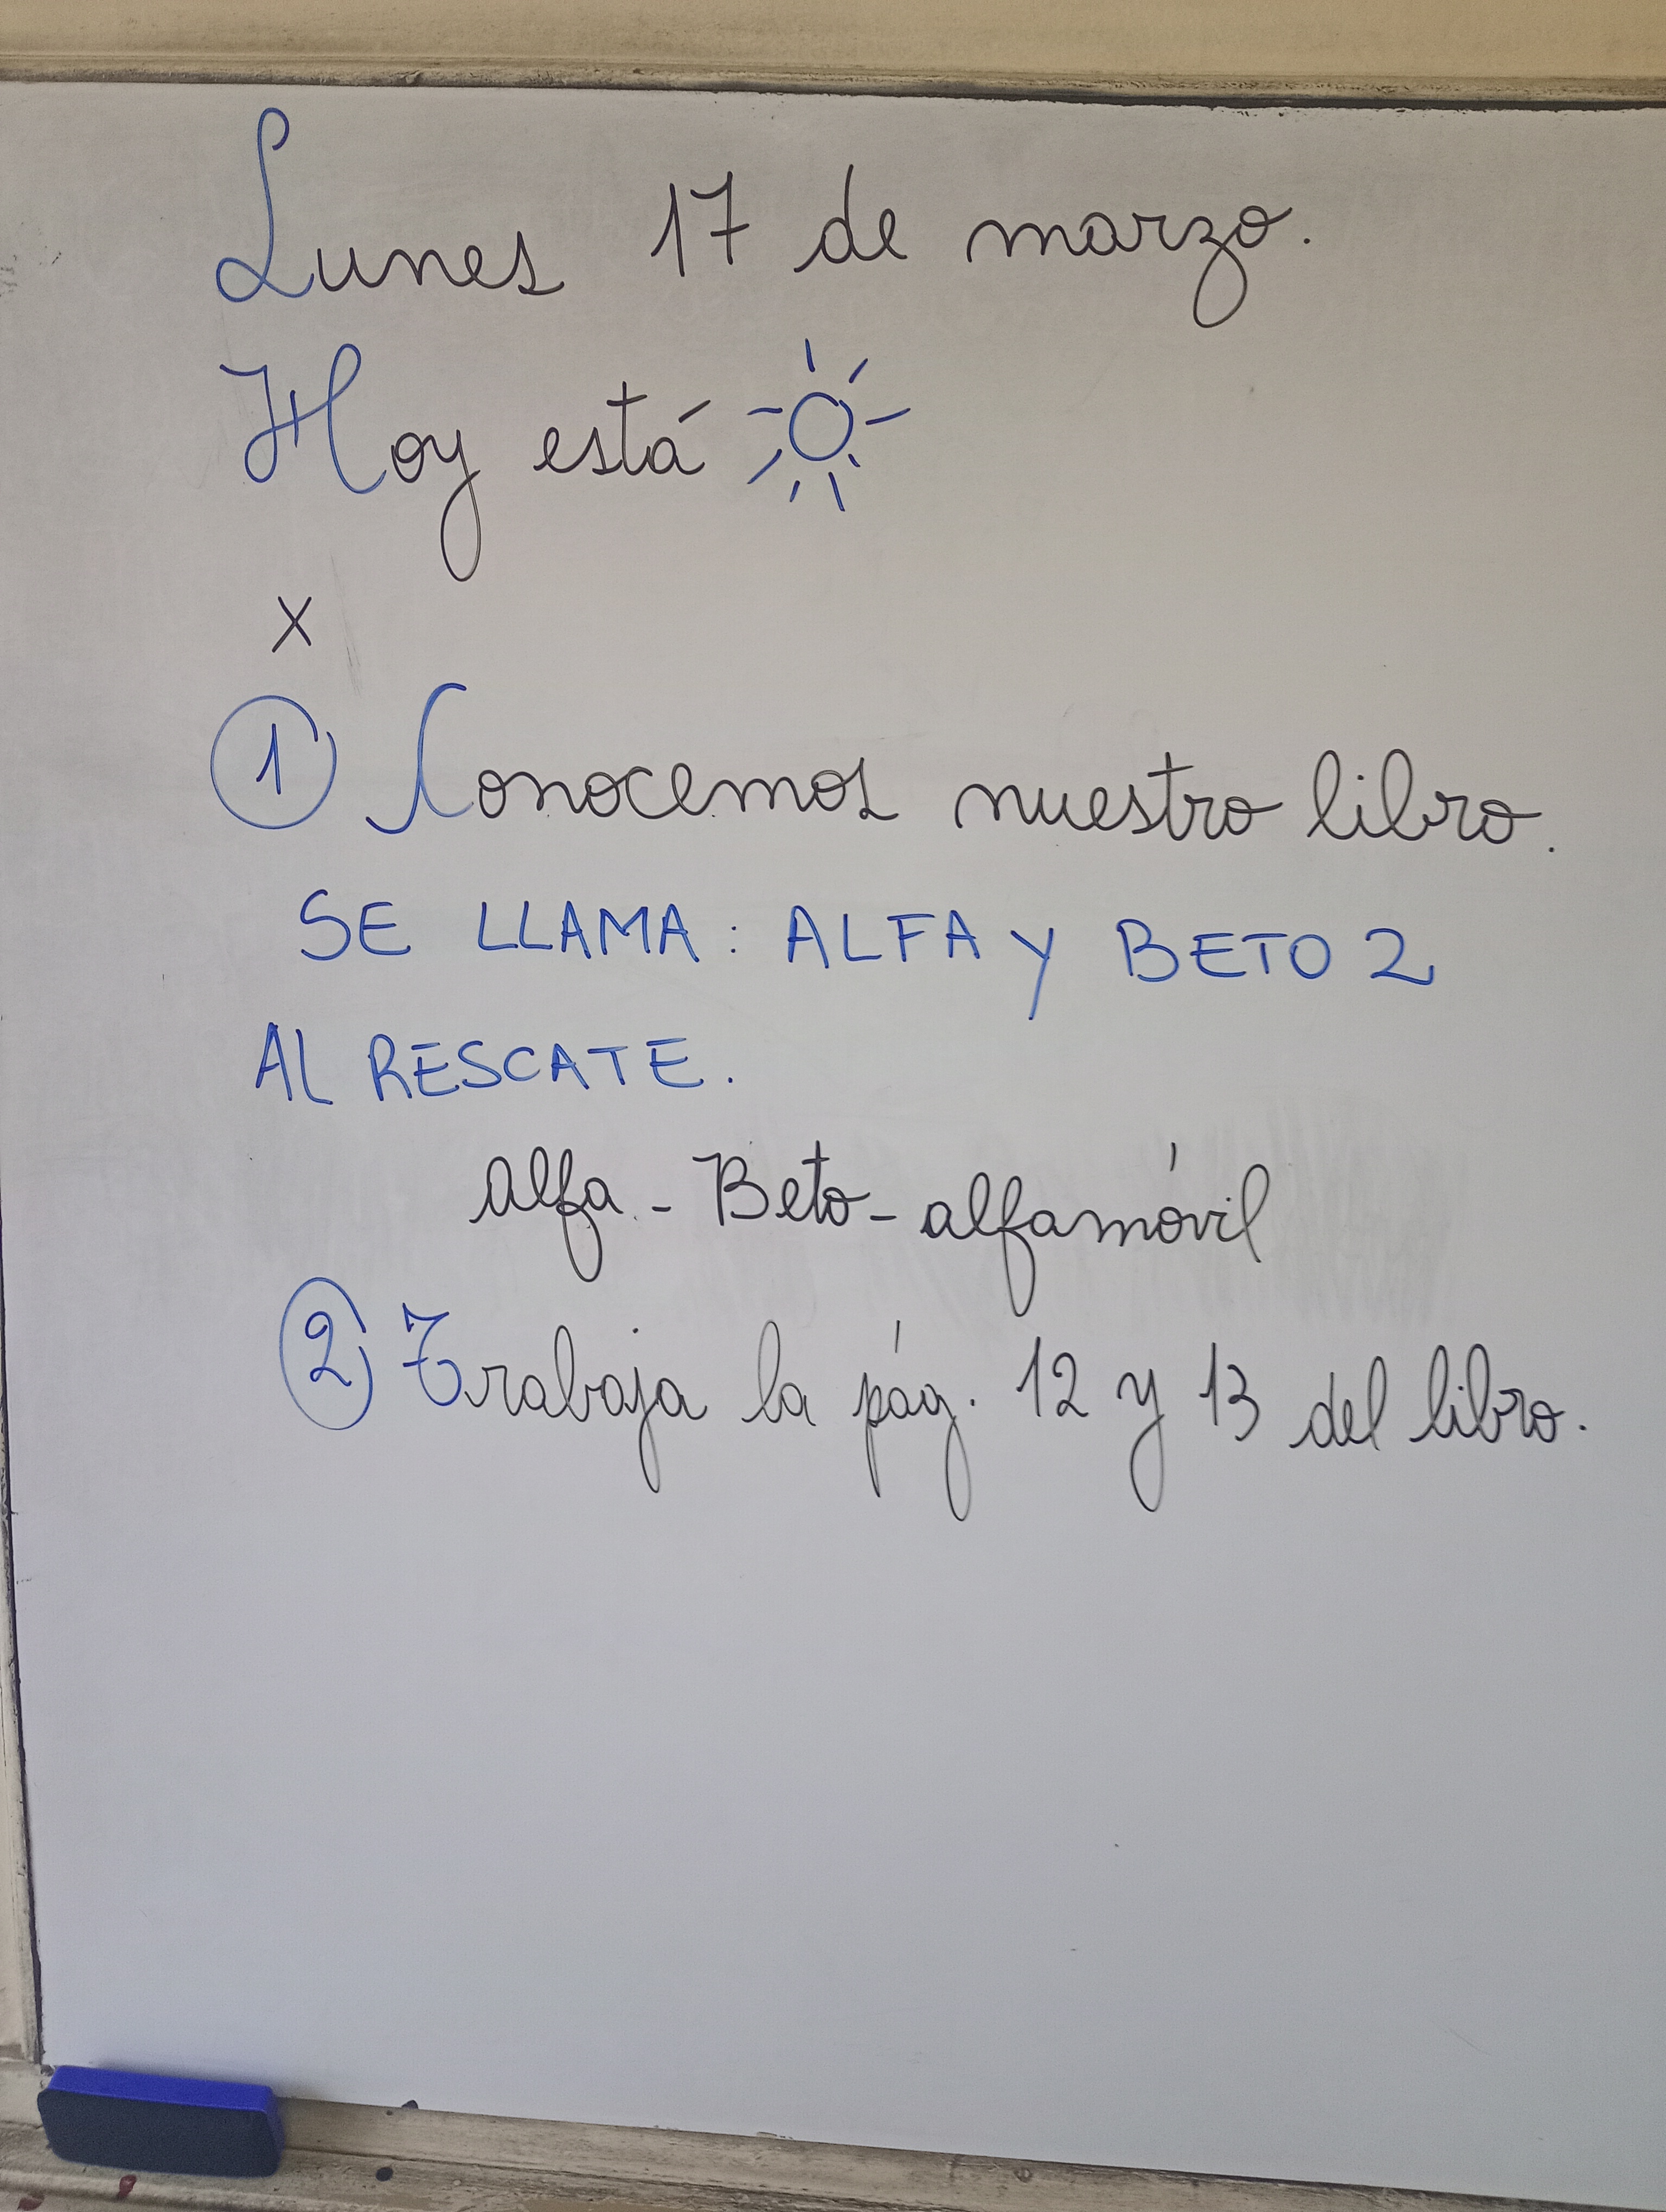 Lunes 17 de marzo.
Hoy está
x
1 Conocemos nuestro libro.
SE LLAMA: ALFA y BETO 2
Al RESCATE.
Alfa - Beto - alfamóvil
2 Trabaja la pág. 12 y 13 del libro.